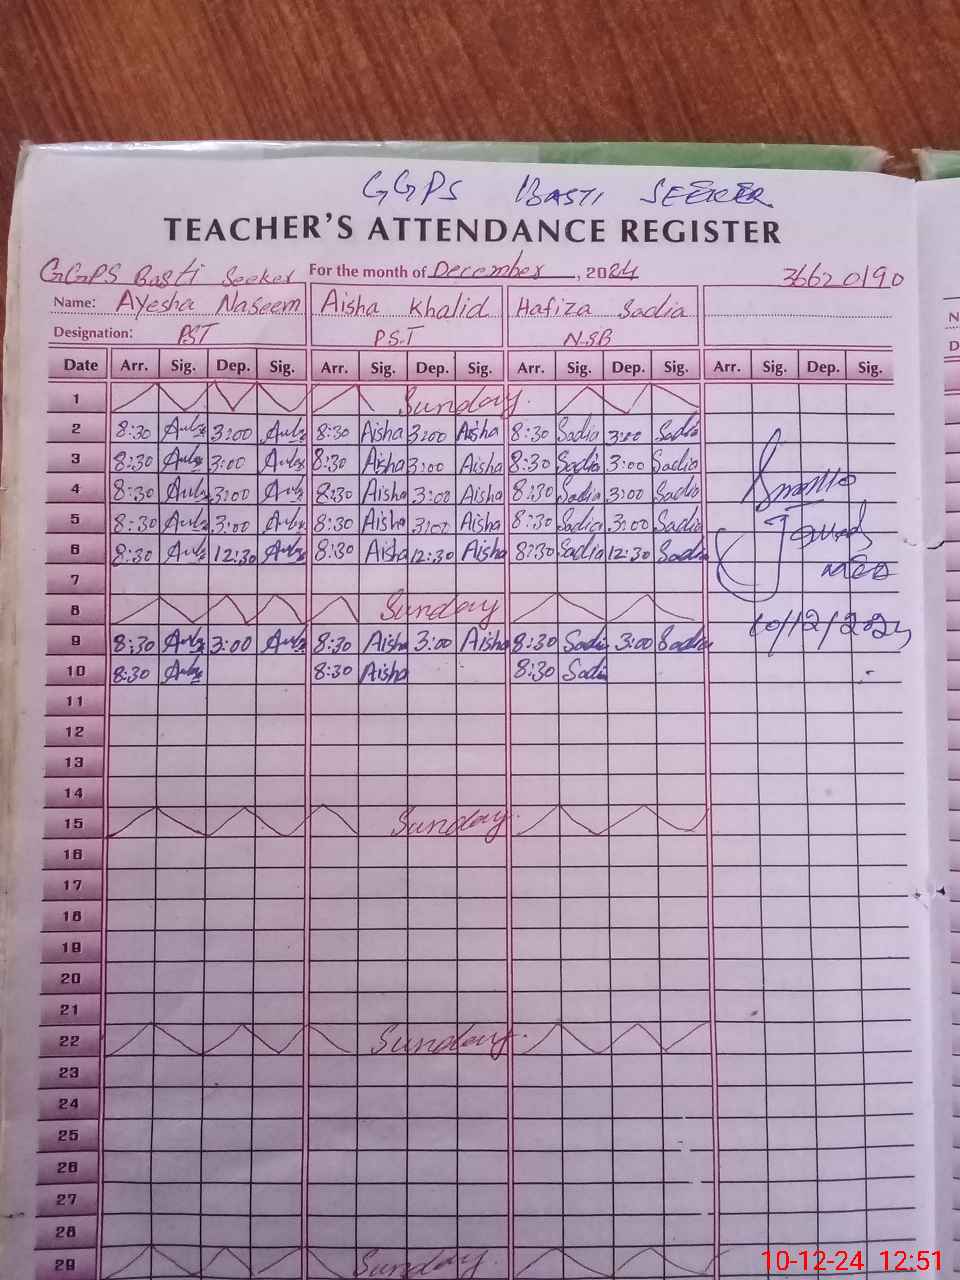 GGPS BASTI SEEKER
TEACHER'S ATTENDANCE REGISTER
GGPS Basti Seeker For the month of December, 2024 36620190
Name: Ayesha Naseem Aisha Khalid Hafiza Sadia
Designation: PST P.S.T N.S.B
Date Arr. Sig. Dep. Sig. Arr. Sig. Dep. Sig. Arr. Sig. Dep. Sig. Arr. Sig. Dep. Sig.
1 Sunday
2 8:30 3:00 8:30 Aisha 3:00 Aisha 8:30 Sadia 3:00 Sadia
3 8:30 3:00 8:30 Aisha 3:00 Aisha 8:30 Sadia 3:00 Sadia
4 8:30 3:00 8:30 Aisha 3:00 Aisha 8:30 Sadia 3:00 Sadia
5 8:30 3:00 8:30 Aisha 3:00 Aisha 8:30 Sadia 3:00 Sadia
6 8:30 12:30 8:30 Aisha 12:30 Aisha 8:30 Sadia 12:30 Sadia
7
8 Sunday
9 8:30 3:00 8:30 Aisha 3:00 Aisha 8:30 Sadia 3:00 Sadia
10/12/2024
10 8:30 8:30 Aisha 8:30 Sadia
11
12
13
14
15 Sunday
16
17
18
19
20
21
22 Sunday
23
24
25
26
27
28
29 Sunday
N
D
10-12-24 12:51